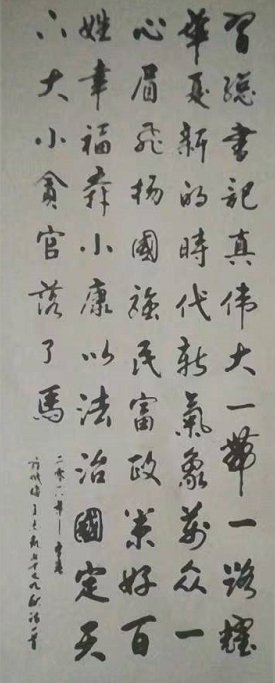 習總書記真伟大一帶一路耀
華夏新的時代新氣象萬众一
心眉飛揚國強民富政策好百
姓幸福奔小康以法治國定天
下大小貪官落了馬
二零一八年